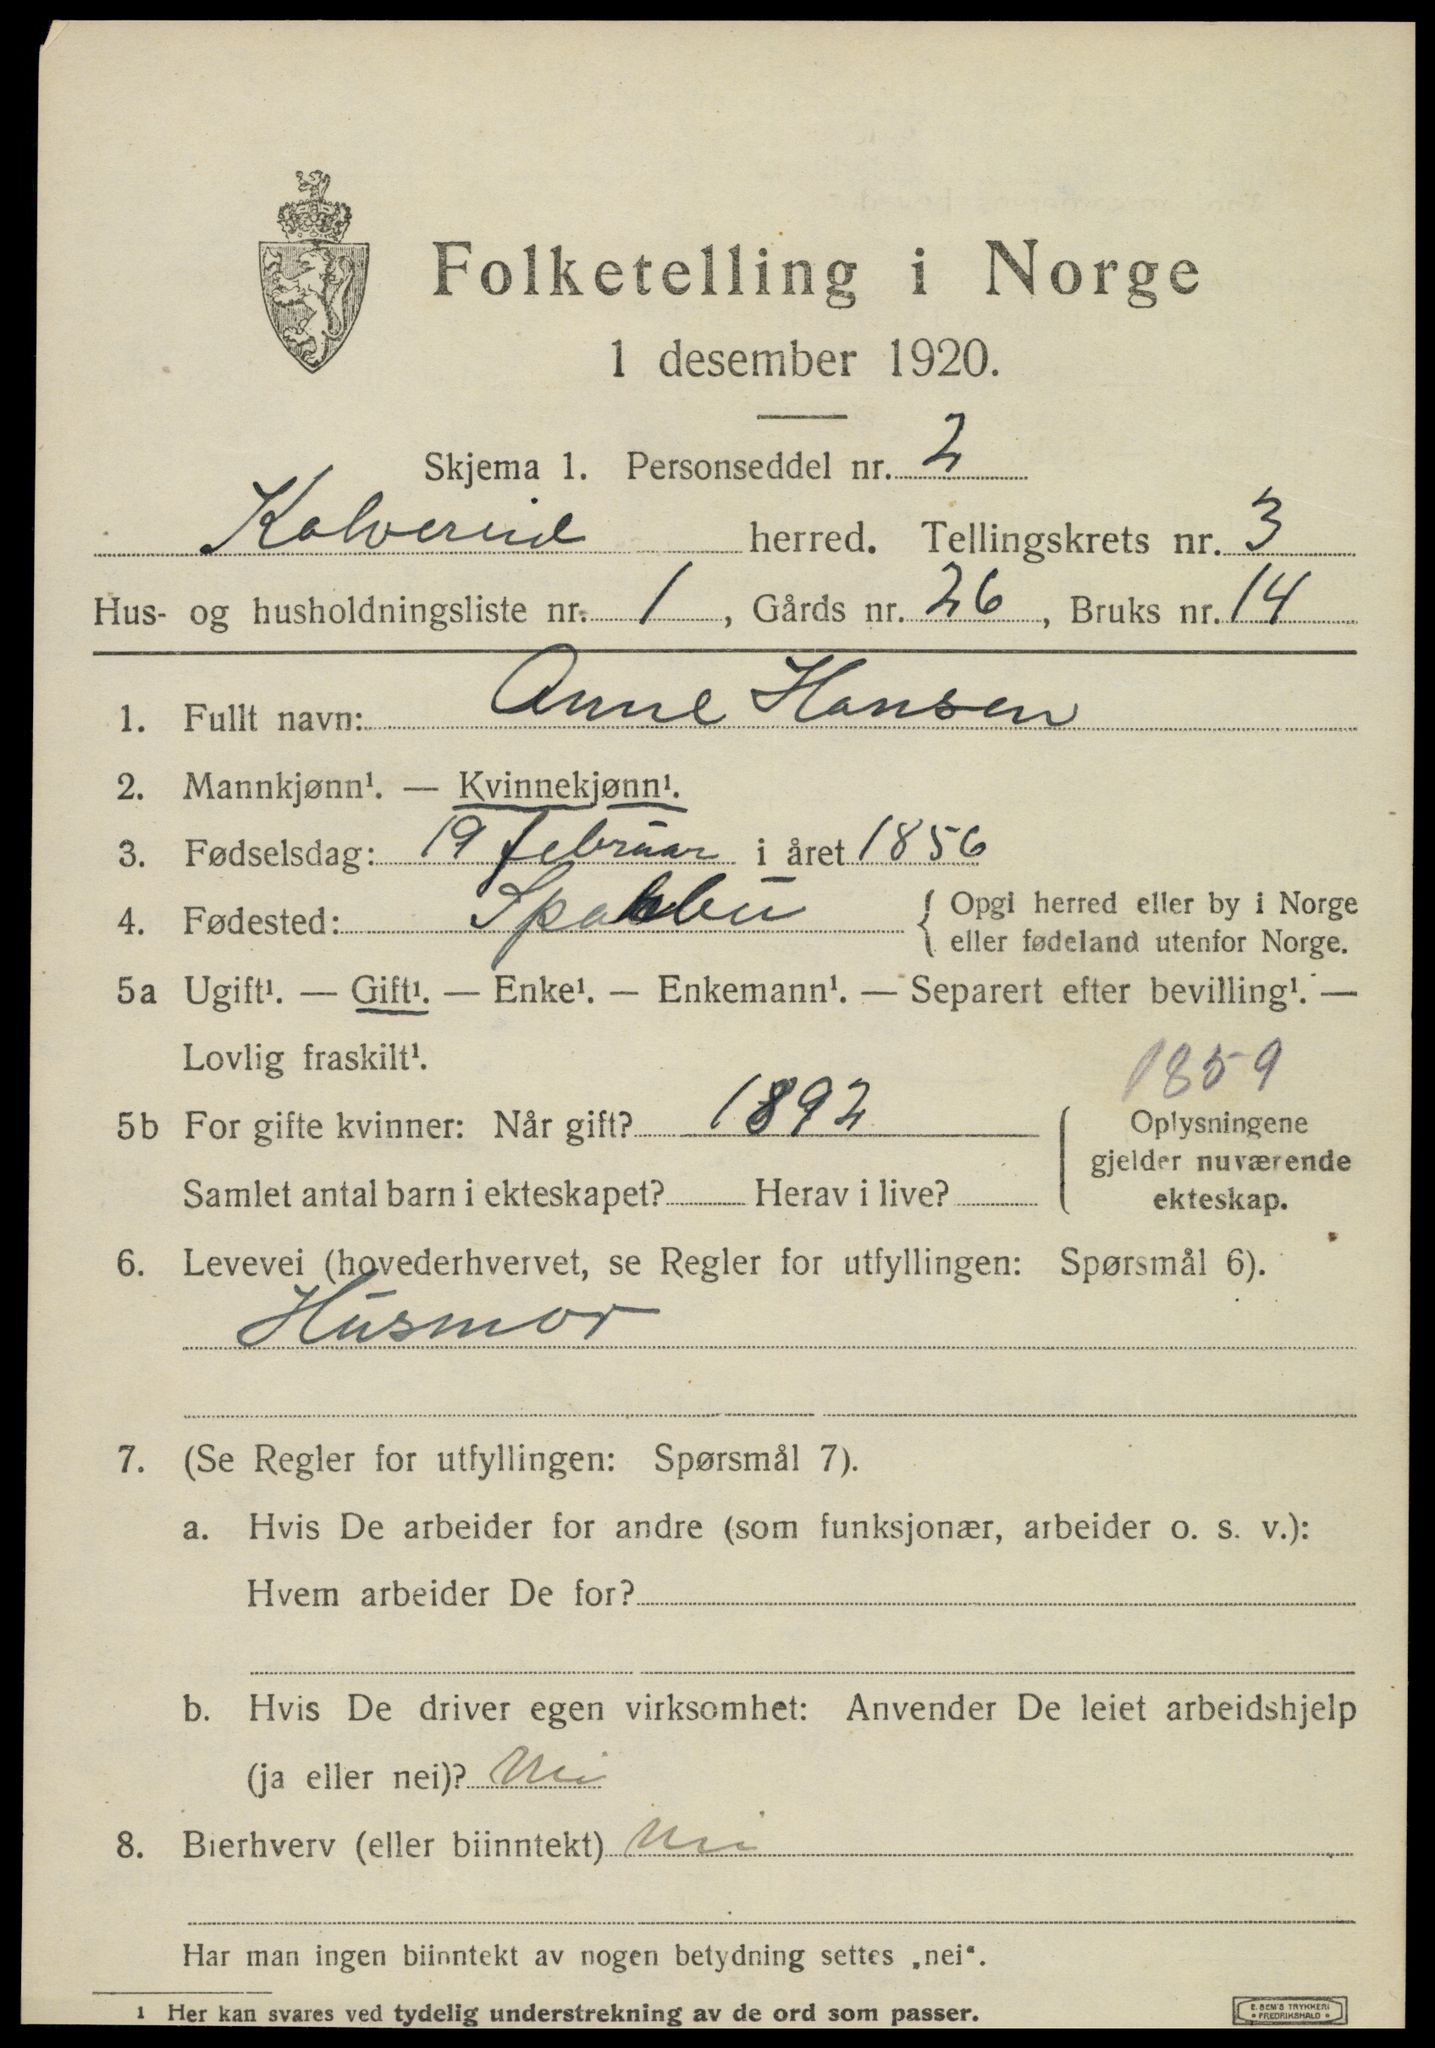 Folketelling i Norge
1 desember 1920.
Skjema 1. Personseddel nr. 2
Kolvereid herred. Tellingskrets nr. 3
Hus- og husholdningsliste nr. 1, Gårds nr. 26, Bruks nr. 14
1. Fullt navn: Anne Hansen
2. Mannkjønn¹. — Kvinnekjønn¹.
3. Fødselsdag: 19 februar i året 1856
4. Fødested: Sparbu { Opgi herred eller by i Norge
eller fødeland utenfor Norge.
5a Ugift¹. — Gift¹. — Enke¹. — Enkemann¹. — Separert efter bevilling¹. —
Lovlig fraskilt¹.
1859
5b For gifte kvinner: Når gift? 1892
Samlet antal barn i ekteskapet? Herav i live?
{ Oplysningene
gjelder nuværende
ekteskap.
6. Levevei (hovederhvervet, se Regler for utfyllingen: Spørsmål 6).
Husmor
7. (Se Regler for utfyllingen: Spørsmål 7).
a. Hvis De arbeider for andre (som funksjonær, arbeider o. s. v.):
Hvem arbeider De for?
b. Hvis De driver egen virksomhet: Anvender De leiet arbeidshjelp
(ja eller nei)? Nei
8. Bierhverv (eller biinntekt) Nei
Har man ingen biinntekt av nogen betydning settes „nei“.
¹ Her kan svares ved tydelig understrekning av de ord som passer.
E. SEM'S TRYKKERI
• FREDRIKSHALD •